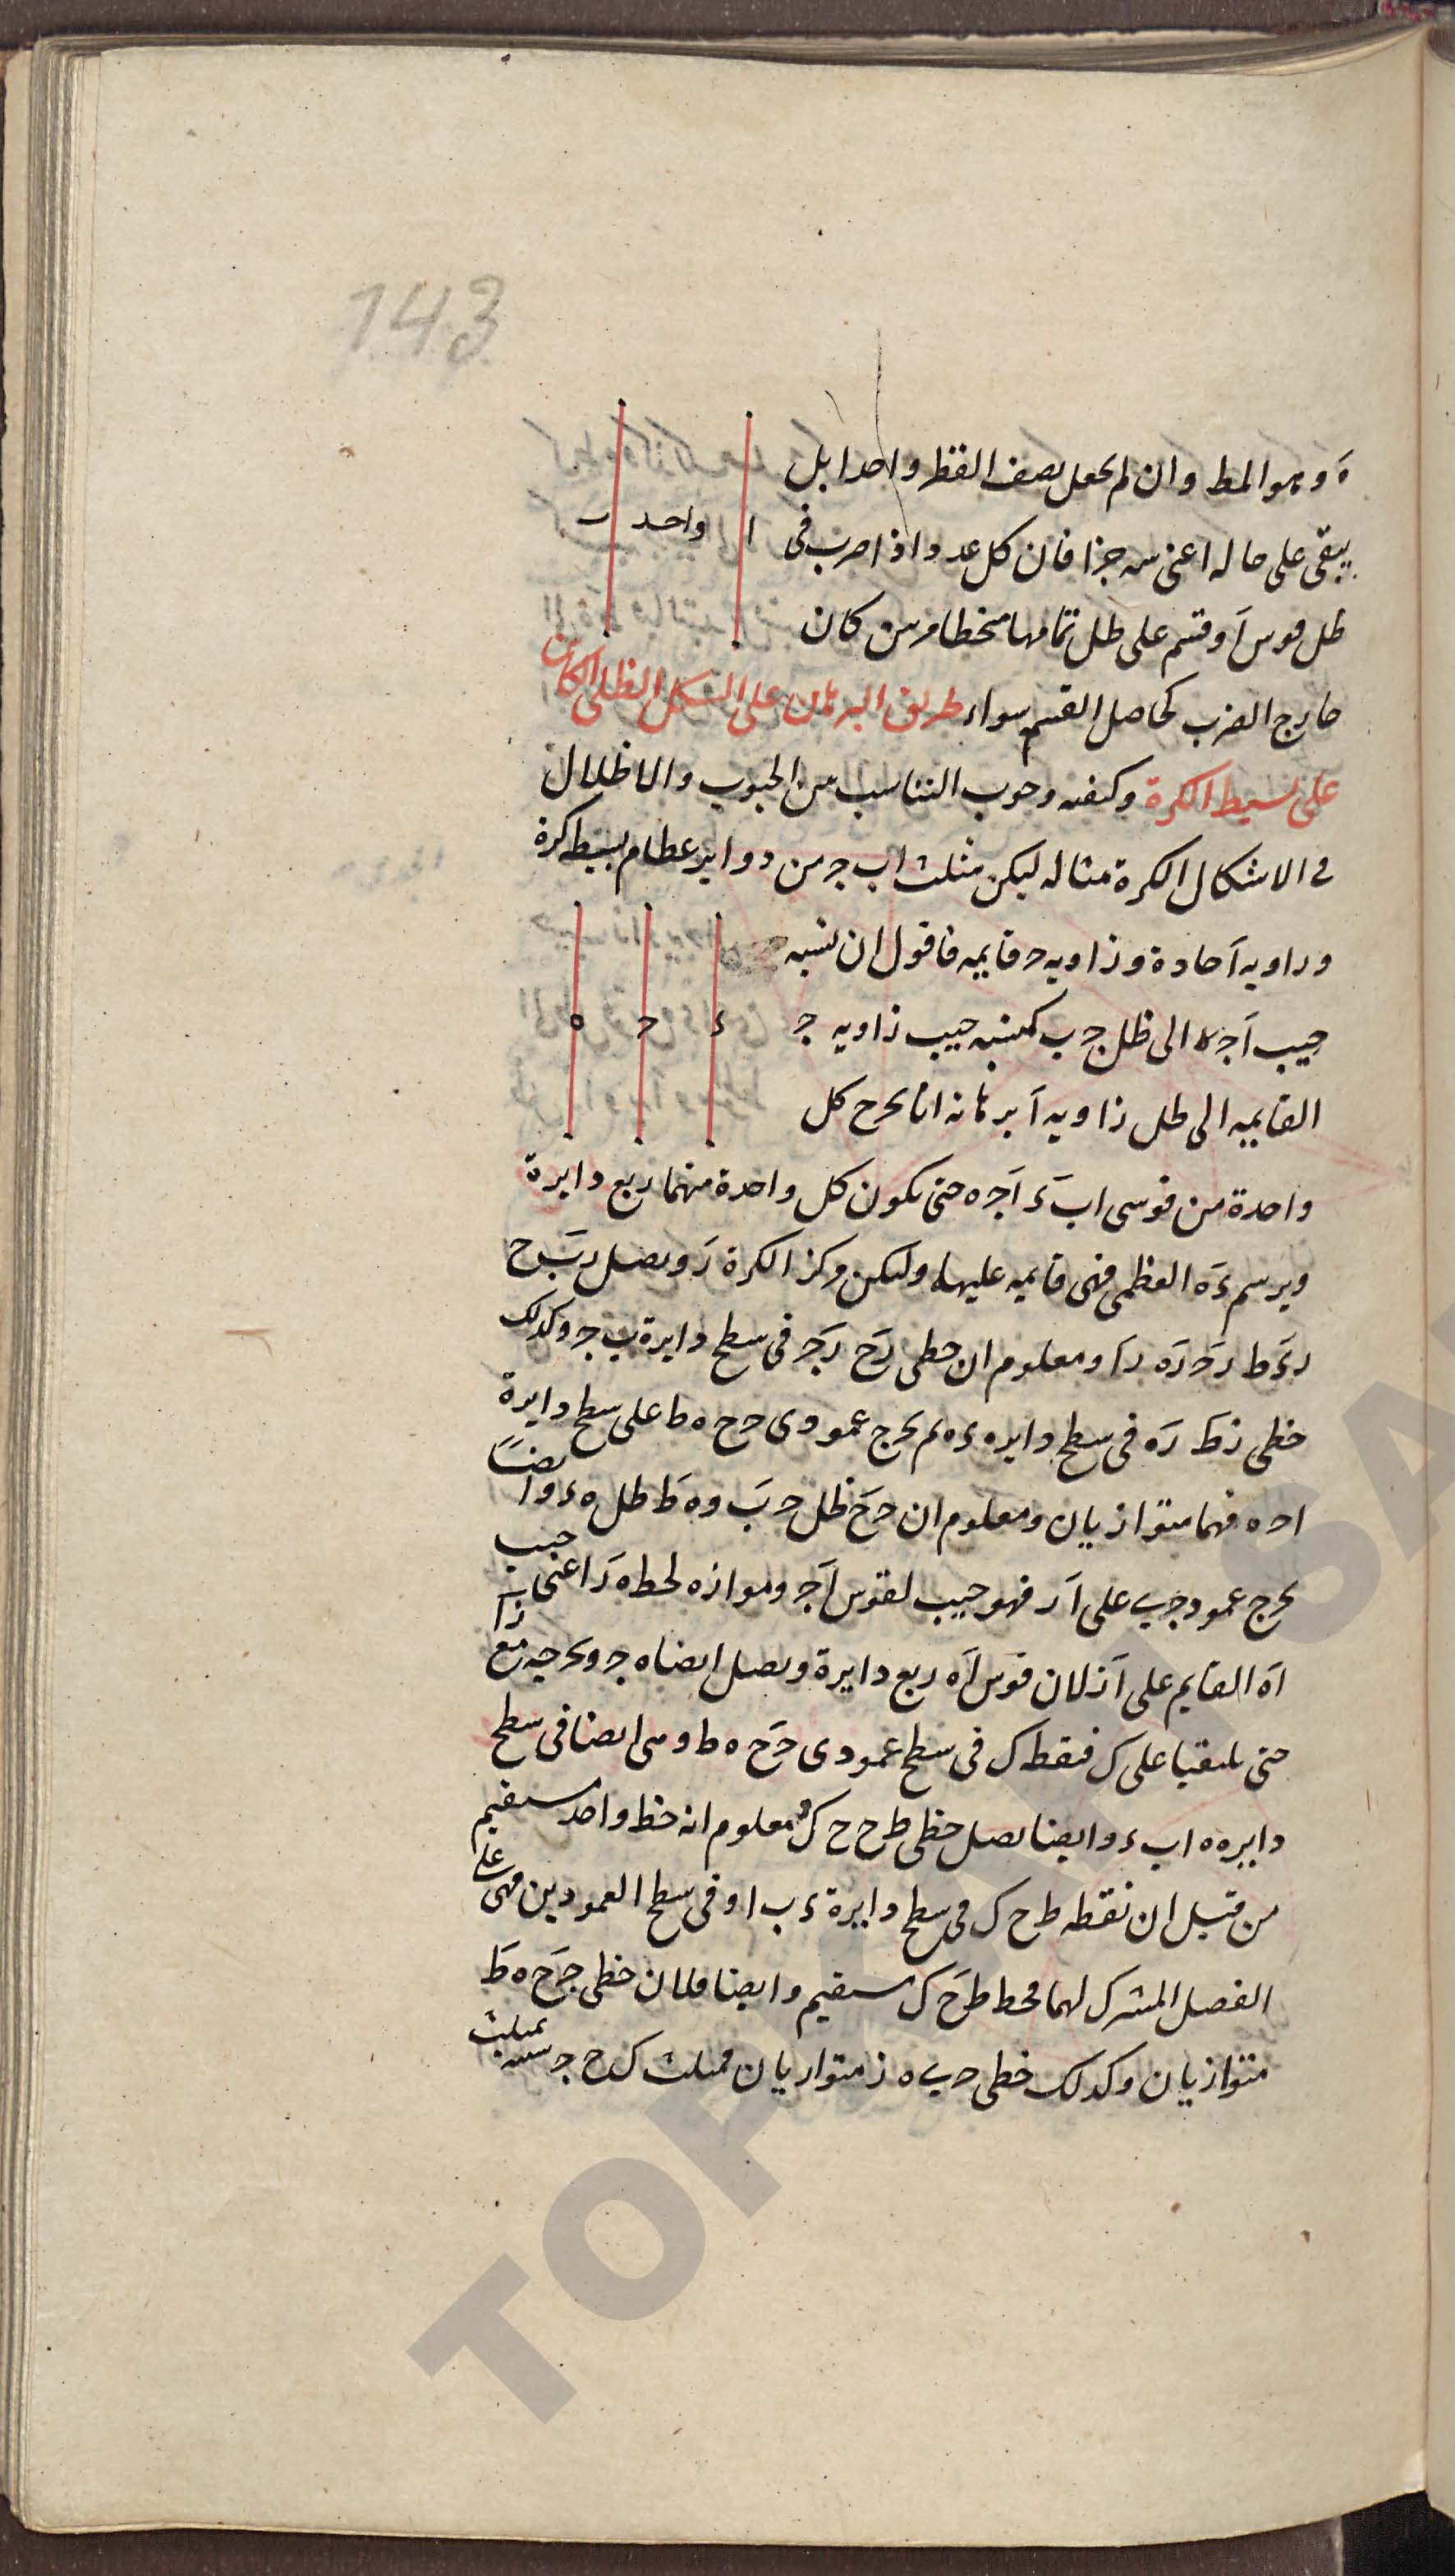 143
هَ وهو المط وان لم يجعل نصف القطر واحدا بل
يبقى على حاله اعنى س‍ه جزا فان كل عدد اذا ضرب فى
ا واحد ب
ظل قوس اَ وقسم على ظل تمامها منحطا مرتين كان
خارج الضرب كحاصل القسم سواء طريق البرهان على الشكل الظلى الكاين
على بسيط الكرة وكيفيه وجوب التناسب بين الجيوب والاظلال
فى الاشكال الكرة مثاله ليكن مثلث اب جـ من دواير عظام بسيط كرة
وزاويه اَ حادة وزاويه حـ قايمه فاقول ان نسبه
جيب اَجـ الى ظل جـ ب كنسبه جيب زاويه جـ
ء حـ ه
القايمه الى ظل زاويه اَ برهانه انا نخرج كل
واحدة من قوسى ابَ ءَ اَجـ ه حتى تكون كل واحدة منهما ربع دايرة
ويرسم ءَه العظمى فهى قايمه عليها وليكن مركز الكرة زَ ونصل زبَ ح
زءَط زَجـ زَه زا ومعلوم ان خطى زَح زَجـ فى سطح دايرة ب جـ وكذلك
خطى زط زَه فى سطح دايره ءه ثم نخرج عمودى جـح ه ط على سطح دايرة
اجـ ه فهما متوازيان ومعلوم ان جـَح ظل جـ بَ وه طَ ظل ه ء وايضًا
نخرج عمود جـ ى على اَ ز فهو جيب لقوس اَجـ وموازه لخط ه زَ اعنى جيب
اَه القايم على اَز لان قوس اَه ربع دايرة ونصل ايضا ه جـ ونخرجه مع زا
حتى يلتقيا على ك فنقطه ك فى سطح عمودى جـَح ه ط وهى ايضا فى سطح
دايره ه اب ء وايضا نصل خطى ط ح ح ك ومعلوم انه خط واحد مستقيم
من قبل ان نقطه ط ح ك فى سطح دايرة ء ب ا وفى سطح العمودين فهى على
الفصل المشترك لهما فخط طَ حَ ك مستقيم وايضا فلان خطى جـَح ه طَ
متوازيان وكذلك خطى جـ ى ه ز متوازيان فمثلث ك ح جـ شبيه بمثلث